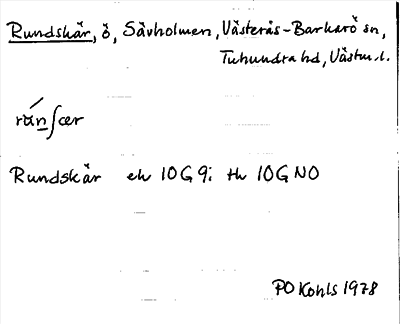 Rundskär, ö, Sävholmen, Västerås-Barkarö sn,
Tuhundra hd, Västm.l.
rúnʃær
Rundskär ek 10G 9i th 10G NO
PO Kohls 1978